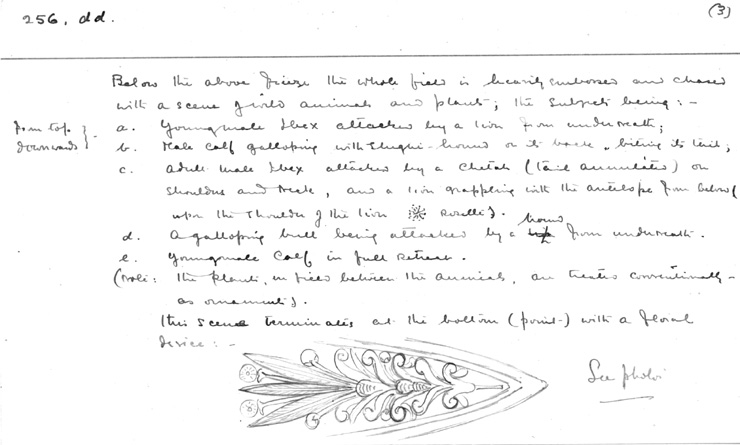 256, dd.
(3)
Below the above frieze the whole field is heavily embossed and chased
with a scene of wild animals and plants; the subjects being: -
from top
downwards } -
a. Young male Ibex attacked by a lion from underneath;
b. Male calf galloping with slughi-hound on its back, biting its tail;
c. Adult male Ibex attacked by a Chetah (tail annulated) on
shoulders and neck, and a lion grappling with the antelope from below (
upon the shoulder of the lion rosette).
d. A galloping bull being attacked by a hound from underneath.
e. Young male calf in full retreat.
(Note: The plants, in field between the animals, are treated conventionally -
as ornament).
This scene terminates at the bottom (point) with a floral
device: -
See photo